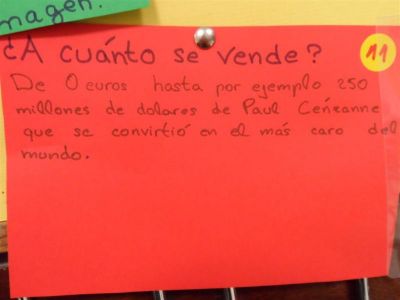 magen.
¿A cuánto se vende?
11
De 0 euros hasta por ejemplo 250
millones de dolares de Paul Ceñzanne
que se convirtió en el más caro del
mundo.